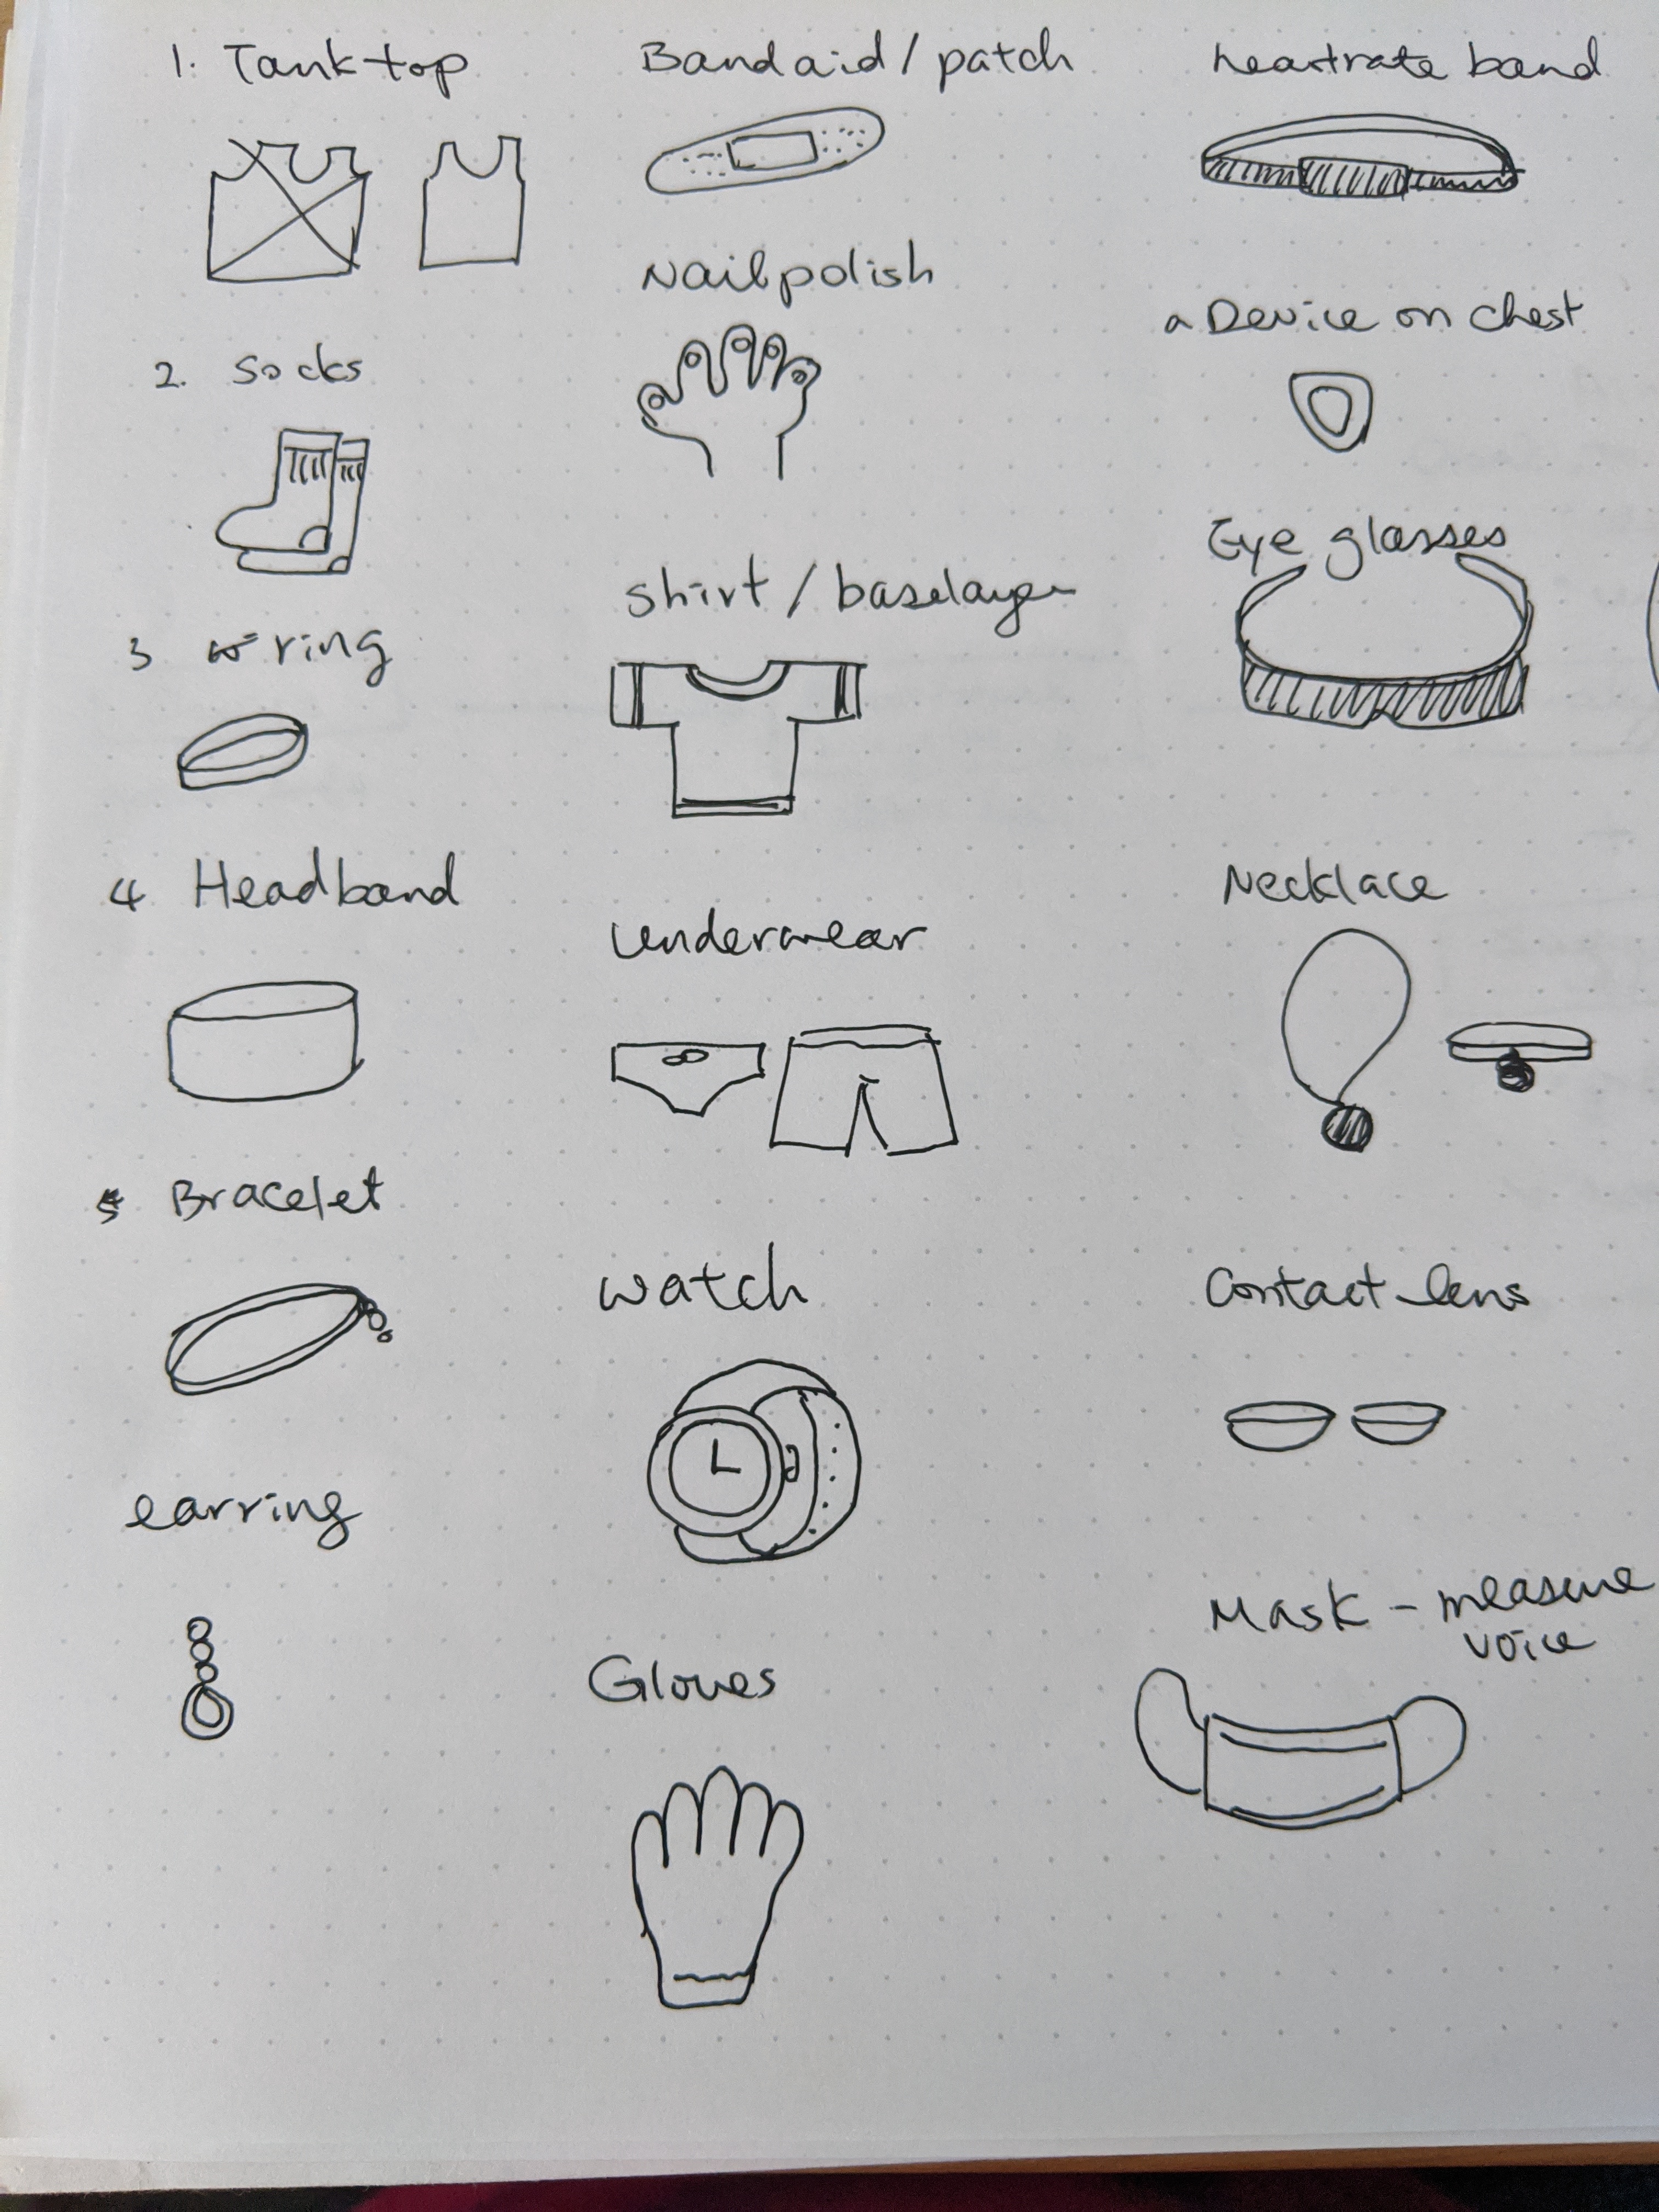 1. Tank top
2. Socks
3 ring
4 Headband
5 Bracelet
earring
Bandaid / patch
Nailpolish
Shirt / baselayer
Underwear
Watch
Gloves
heartrate band
a Device on chest
Eye glasses
Necklace
Contact lens
Mask - measure
voice